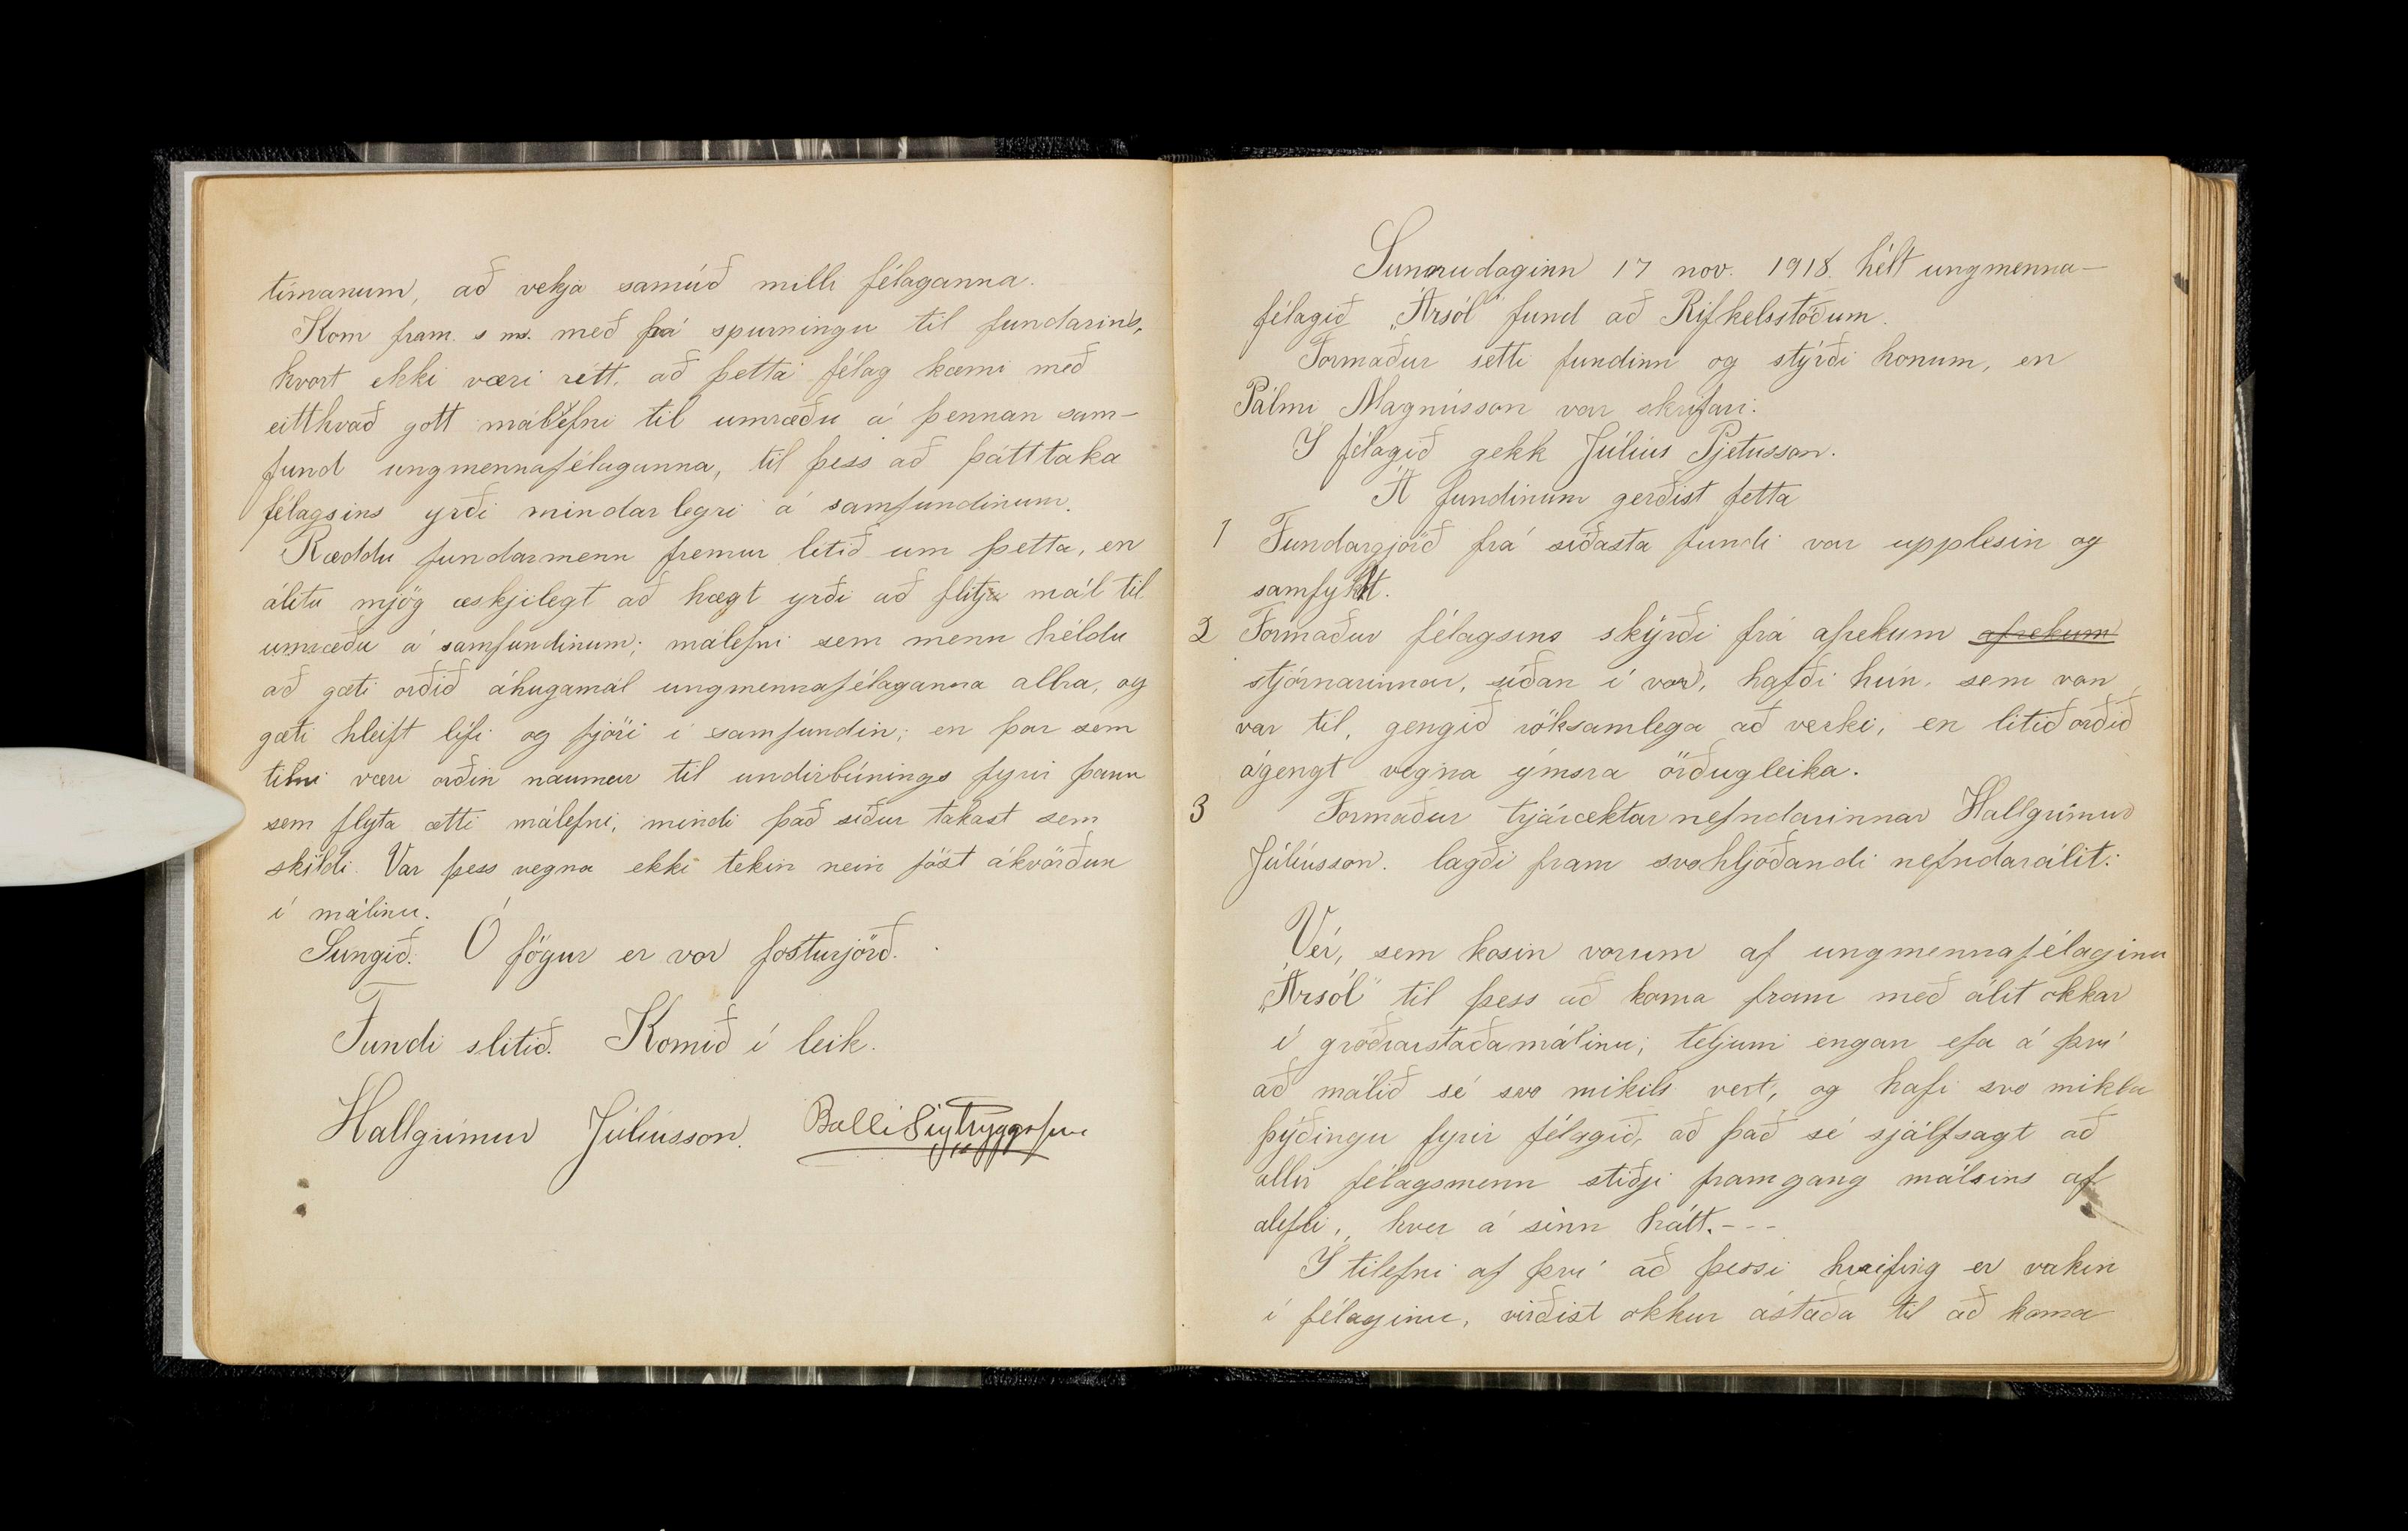 tímanum, að vekja samúð milli félaganna.
Kom fram s m. með þá spurningu til fundarins,
hvort ekki væri rétt, að þetta félag kæmi með
eitthvað gott málefni til umræðu á þennan sam-
fund ungmennafélaganna, til þess að þátttaka
félagsins yrði mindarlegri á samfundinum.
Ræddu fundarmenn fremur lítið um þetta, en
álitu mjög æskjilegt að hægt yrði að flitja mál til
umræðu á samfundinum; málefni sem menn héldu
að gæti orðið áhugamál ungmennafélaganna allra, og
gæti hleift lífi og fjöri í samfundin; en þar sem
tíminn væri orðin naumur til undirbúnings fyrir þann
sem flyta ætti málefni, mindi það síður takast sem
skildi. Var þess vegna ekki tekin nein föst ákvörðun
í málinu.
Sungið. Ó fögur er vor fosturjörð.
Fundi slitið. Komið í leik.
Hallgrímur Júlíusson. Balli Sigtryggsson
Sunnudaginn 17 nov. 1918. hélt ungmenna-
félagið „Ársól" fund að Rifkelsstöðum.
Formaður setti fundinn og stýrði honum, en
Pálmi Magnússon var skrifari.
Í félagið gekk Júlíus Pjetusson.
Á fundinum gerðist þetta
1 Fundargjörð frá síðasta fundi var upplesin og
samþykt.
2 Formaður félagsins skýrði frá afrekum afrekum
stjórnarinnar, síðan í vor, hafði hún, sem van
var til, gengið röksamlega að verki, en lítið orðið
ágengt vegna ýmsra örðugleika.
3 Formaður trjáræktarnefndarinnar Hallgrímur
Júlíusson. lagði fram svohljóðandi nefndarálit:
Vér, sem kosin vorum af ungmennafélaginu
„Ársól" til þess að koma fram með álit okkar
í gróðrarstaðamálinu; teljum engan efa á því
að málið sé svo mikils vert, og hafi svo mikla
þýðingu fyrir félagið, að það sé sjálfsagt að
allir félagsmenn stiðji framgang málsins af
alefli, hver á sinn hátt.---
Í tilefni af því að þessi hreifing er vakin
í félaginu, virðist okkur ástæða til að koma